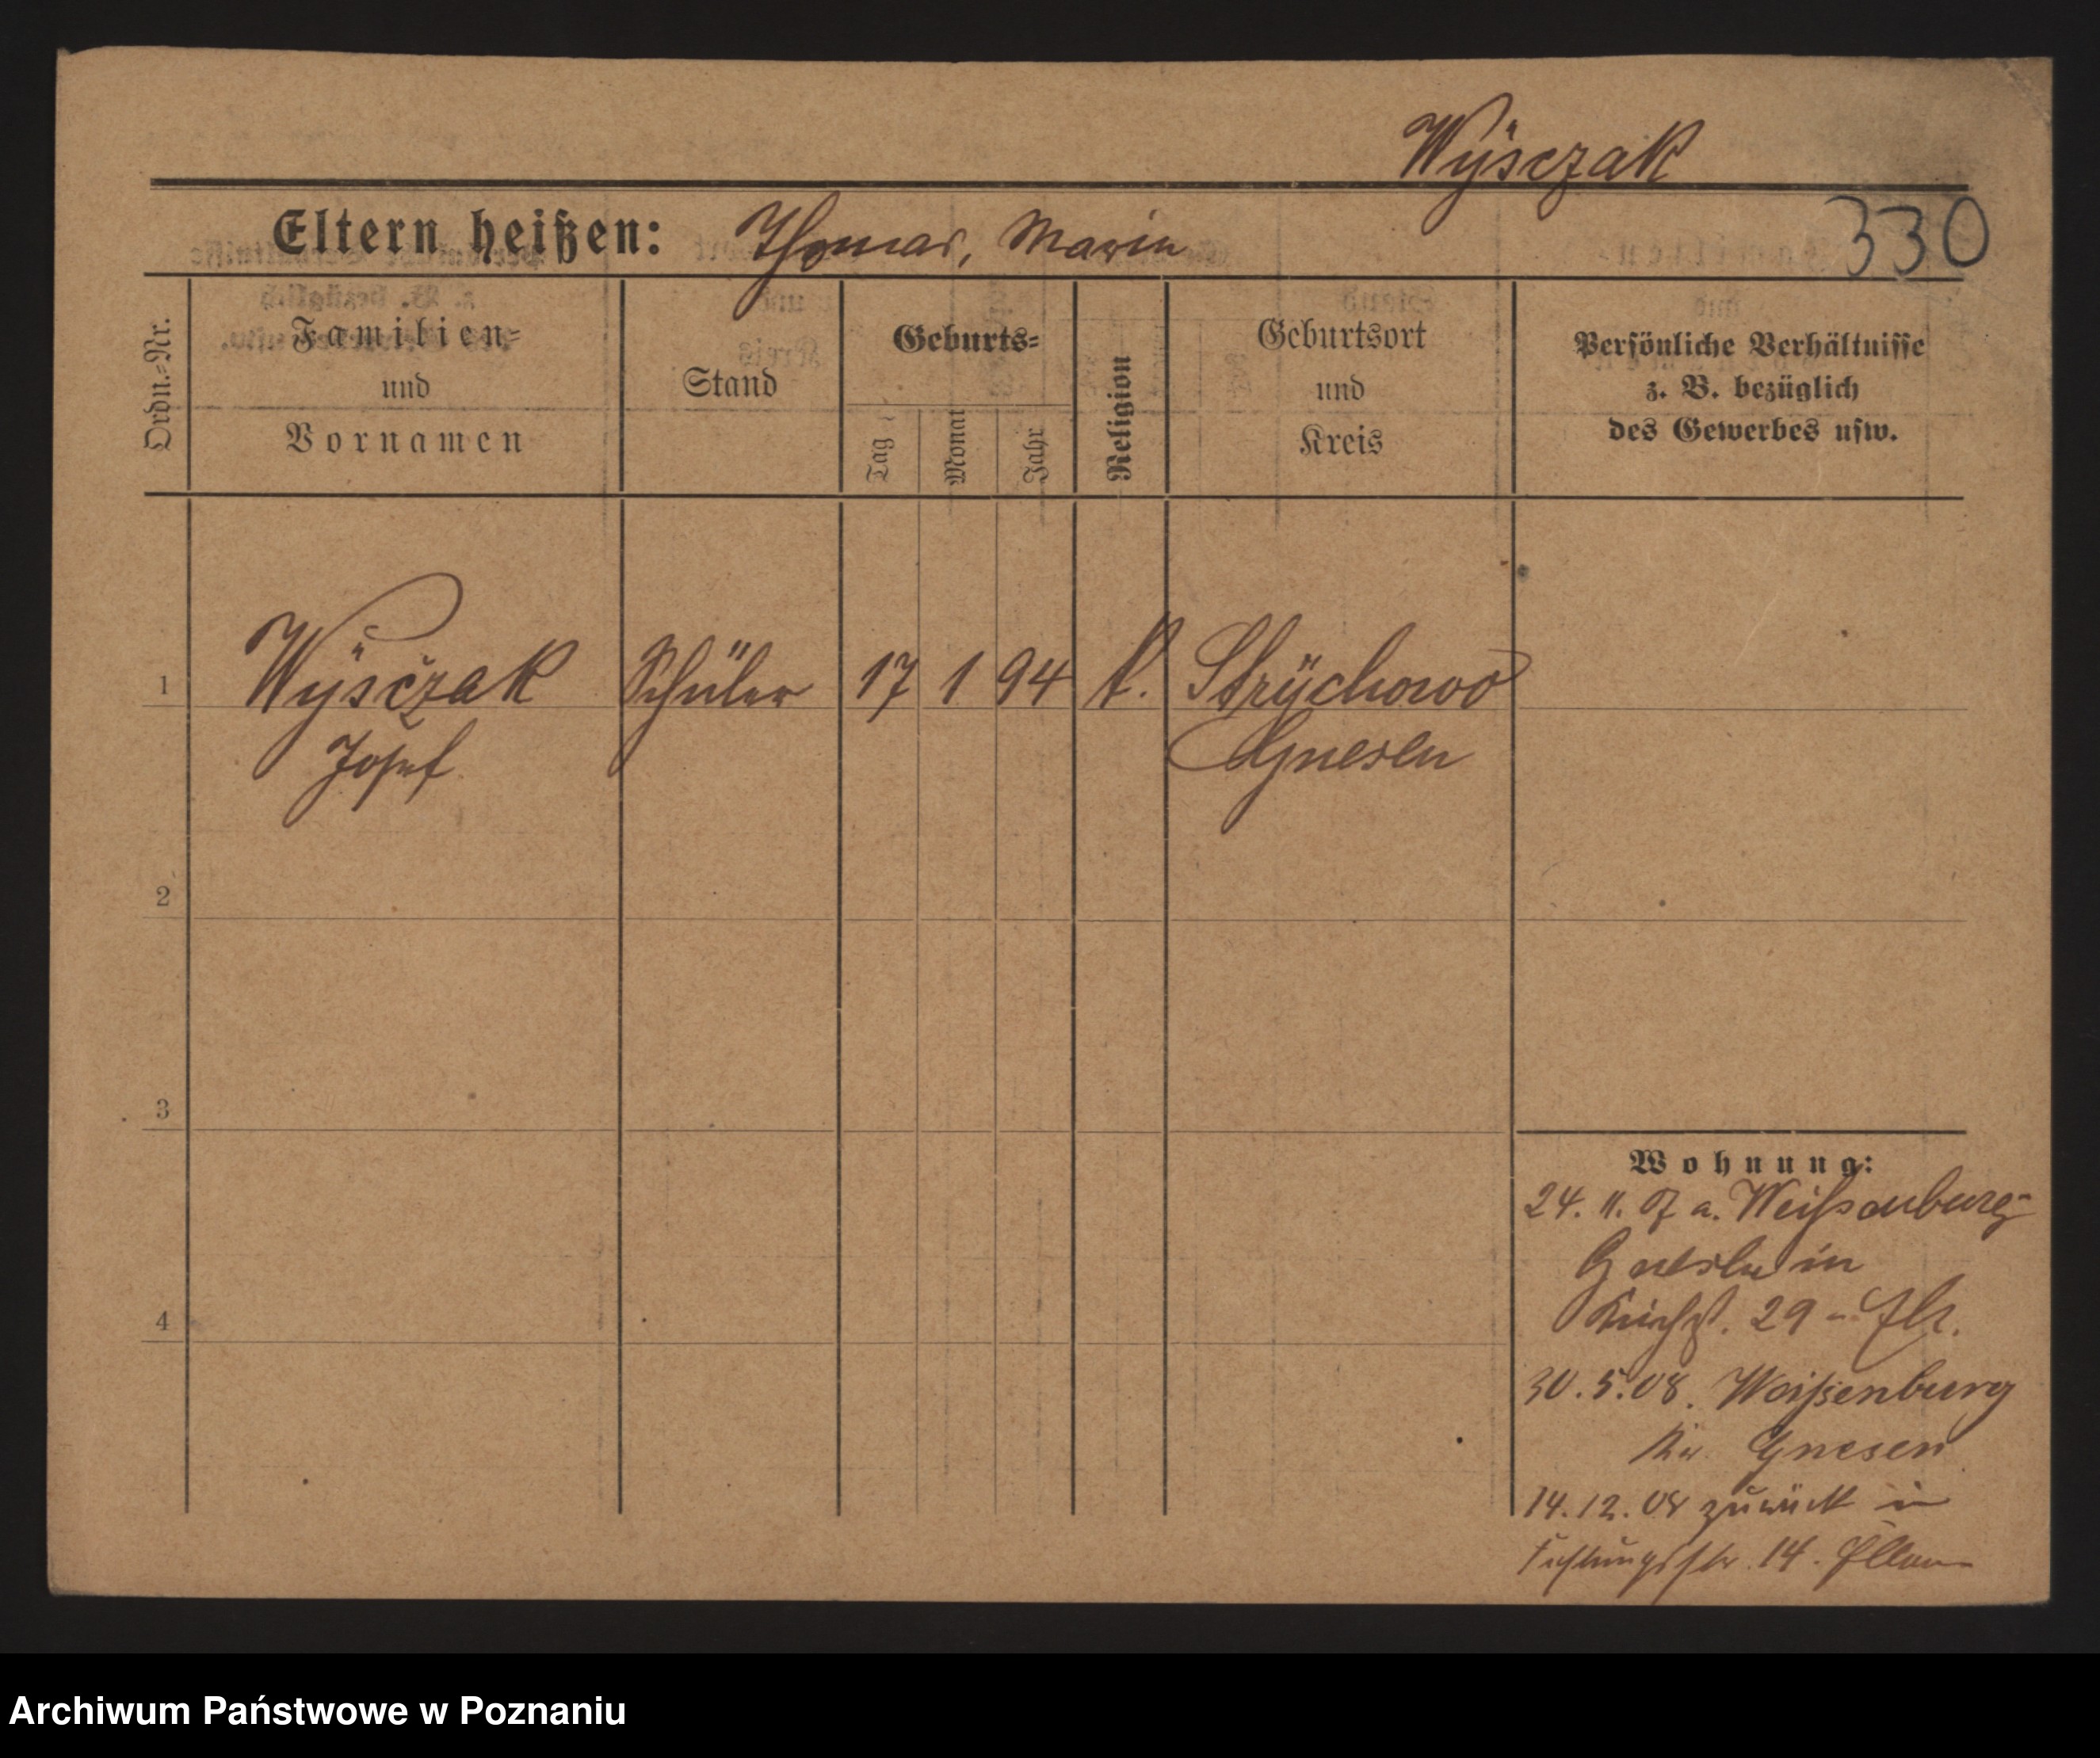 Wÿsczak
Eltern heißen: Thomas, Maria
330
Ordn.-Nr.
Familien-
und
Vornamen
Stand
Geburts-
Tag
Monat
Jahr
Religion
Geburtsort
und
Kreis
Persönliche Verhältnisse
z. B. bezüglich
des Gewerbes usw.
1 Wÿsczak Schüler 17 1 94 k. Strÿchowo
Josef Gnesen
2
3
4
Wohnung:
24. 11. 07 a. Weissenburg-
Gnesen in
29
30.5.08. Weißenburg
Kr. Gnesen
14.12.08 zurück in
14.
Archiwum Państwowe w Poznaniu